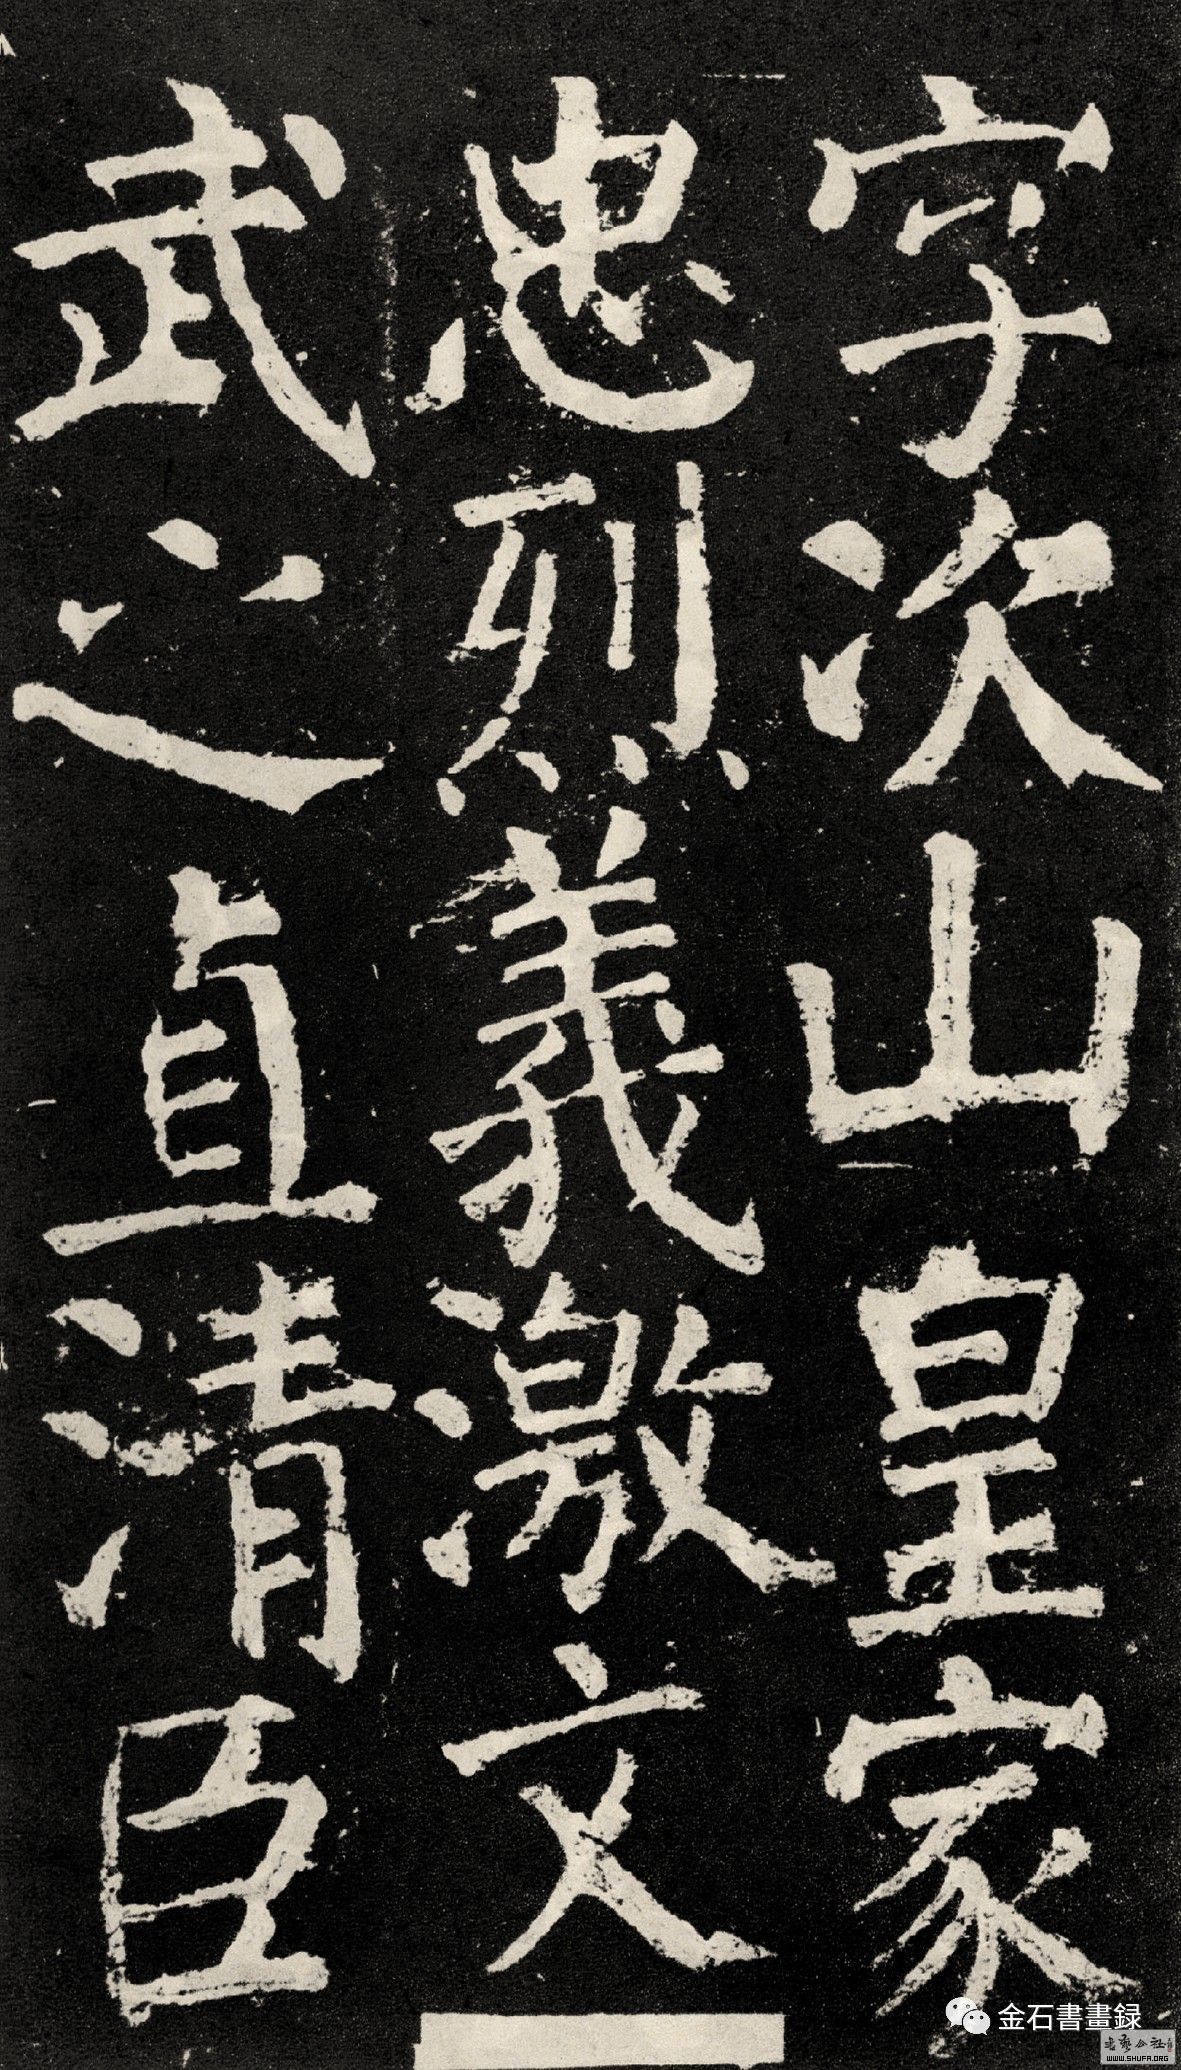 字次山皇家
忠烈義激文
武之直清臣
金石書畫録
WWW.SHUFA.ORG